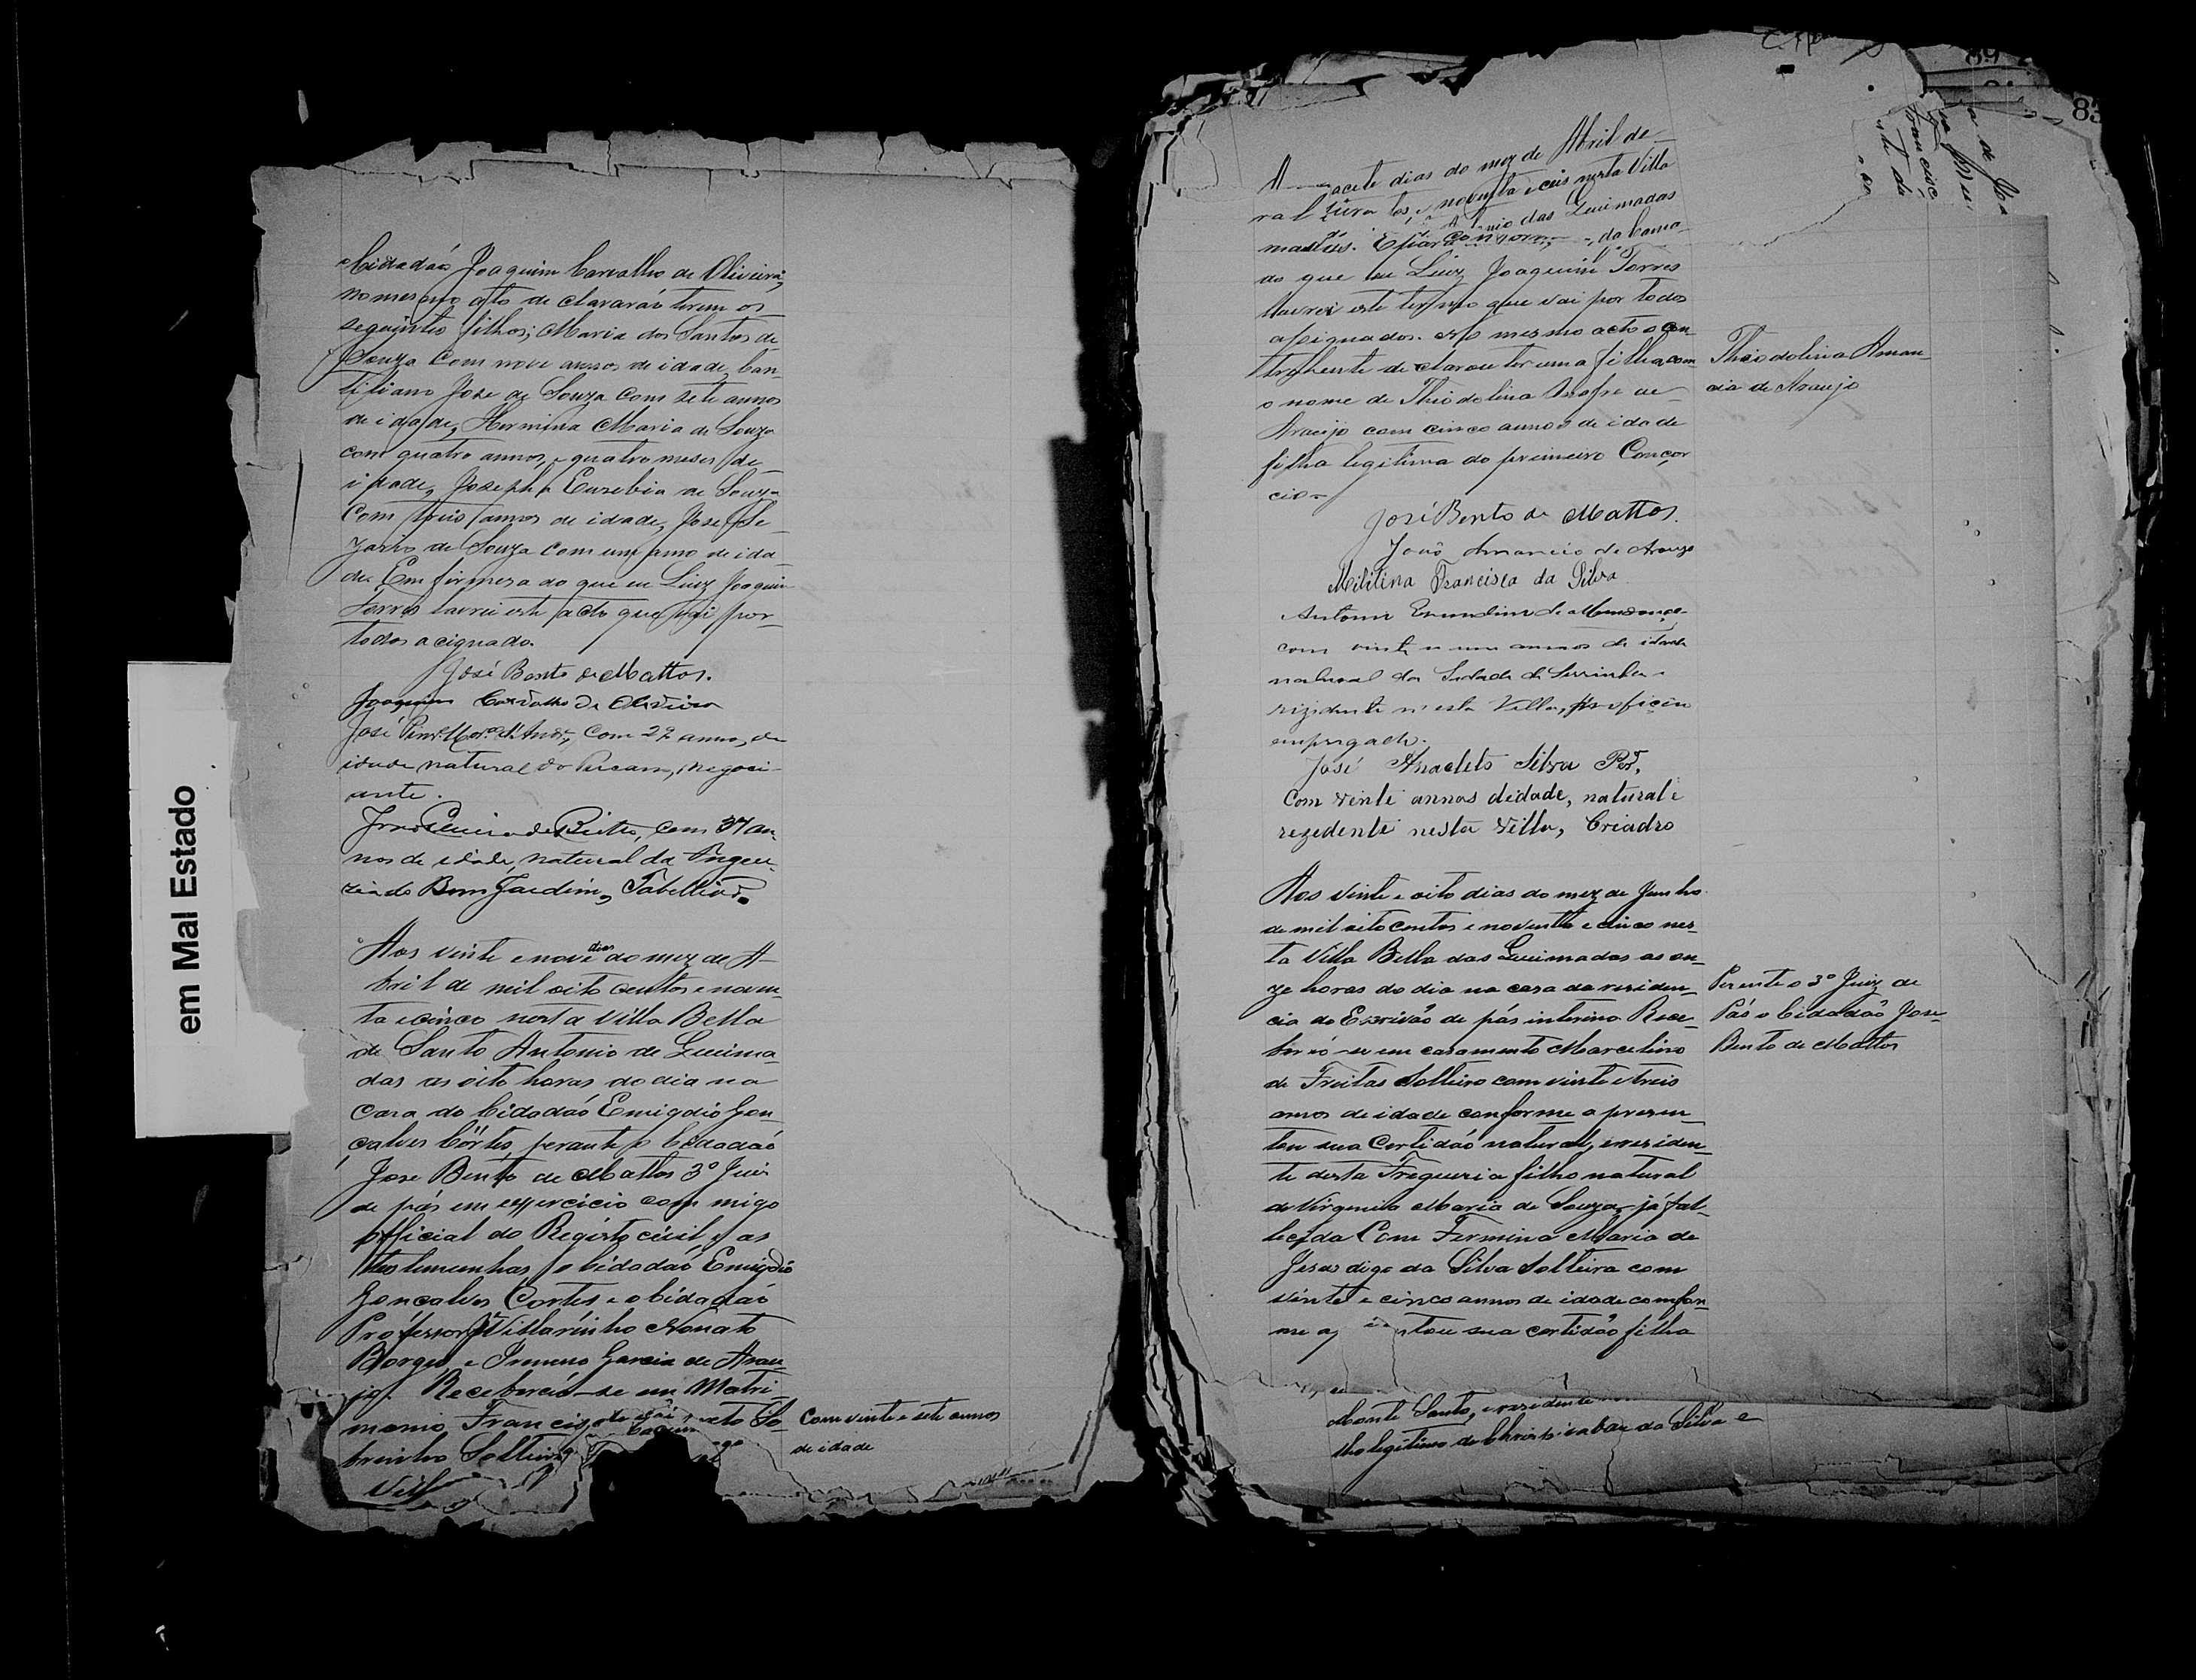 em Mal Estado
Cidadaó Joaquim Carvalho de Oliveira,
no mesmo ato de clararaó terem os
seguintes filhos; Maria dos Santos de
Souza com nove annos de idade, Can-
tiliano Jose de Souza com sete annos
de idade, Hermina Maria de Souza
com quatro annos, e quatro meses de
idade, Josepha Euzebia de Souza
Com treis annos de idade, Jose
de Souza com um anno de ida-
de. Em firmeza do que eu Luiz Joaquim
Torres lavrei este acto que vai por
todos acignado.
José Bento de Mattos.
Joaquim Carvalho de Oliveira
José com 22 annos, de
idade natural do negoci-
ante.
de Britto, com 37 an-
nos de idade, natural da Fregue-
zia do Bom Jardim, Tabellião.
Aos vinte e nove dias do mez de A-
bril de mil oito centos e noven-
ta e cinco nesta Villa Bella
de Santo Antonio de Queima-
das as oito horas do dia na
Casa do Cidadaó Emigdio Gon-
çalves Côrtes, perante o Cidadaó
Jose Bento de Mattos 3º Juis
de pás em exercicio com migo
official do Registo civil e as
testemunhas o Cidadaó Emigdio
Gonçalves Cortes e o Cidadaó
Professor Villarinho Nonato
Borges e Garcia de Arau-
jo. Receberaó-se em Matri-
monio Francis So-
brinho Solteiro
Com vinte e sete annos
de idade
83
acete dias do mez de Abril de
noventa e ceis nesta Villa
das Queimadas
do que eu Luiz Joaquim Torres
lavrei este termo que vai por todos
assignados. No mesmo acto o con-
trahente de clarou ter uma filha com
o nome de Thiodolina de
Araujo com cinco annos de idade
filha legitima do premeiro Conçor
cio
Thiodolina Aman-
cia de Araujo
José Bento de Mattos.
João Amancio de Araujo
Militina Francisca da Silva
Antonio de Mendonça
com vinte e um annos de idade
natural da Sidade de Serrinha e
rizidente n'esta Villa, proficão
empregado.
José Anacleto Silva Per.ª
Com vinte annos didade, natural e
rezedente nesta Villa, Criadro
Aos vinte e oito dias do mez de Junho
de mil oito centos e noventa e cinco nes-
ta Villa Bella das Queimadas as on-
ze horas do dia na casa da residen-
cia do Escrivão de pás interino Rece-
beraó-se em casamento Marcelino
de Freitas Solteiro com vinte e treis
annos de idade conforme a presen-
tou sua Certidaó natural, e residen-
te desta Freguezia filho natural
de Virgencia Maria de Souza já fal-
lecida Com Fermina Maria de
Jesus digo da Silva Solteira com
vinte e cinco annos de idade confor-
me a tou sua certidão filha
Perente o 3º Juiz de
Pás o Cidadão Jose
Bento de Mattos
Monte Santo, e residente
lho legitimo de da Silva e